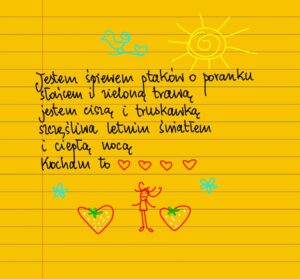 Jestem śpiewem ptaków o poranku
słońcem i zieloną trawą
jestem ciszą i truskawką
szczęśliwa letnim światłem
i ciepłą nocą
Kocham to ♡ ♡ ♡ ♡